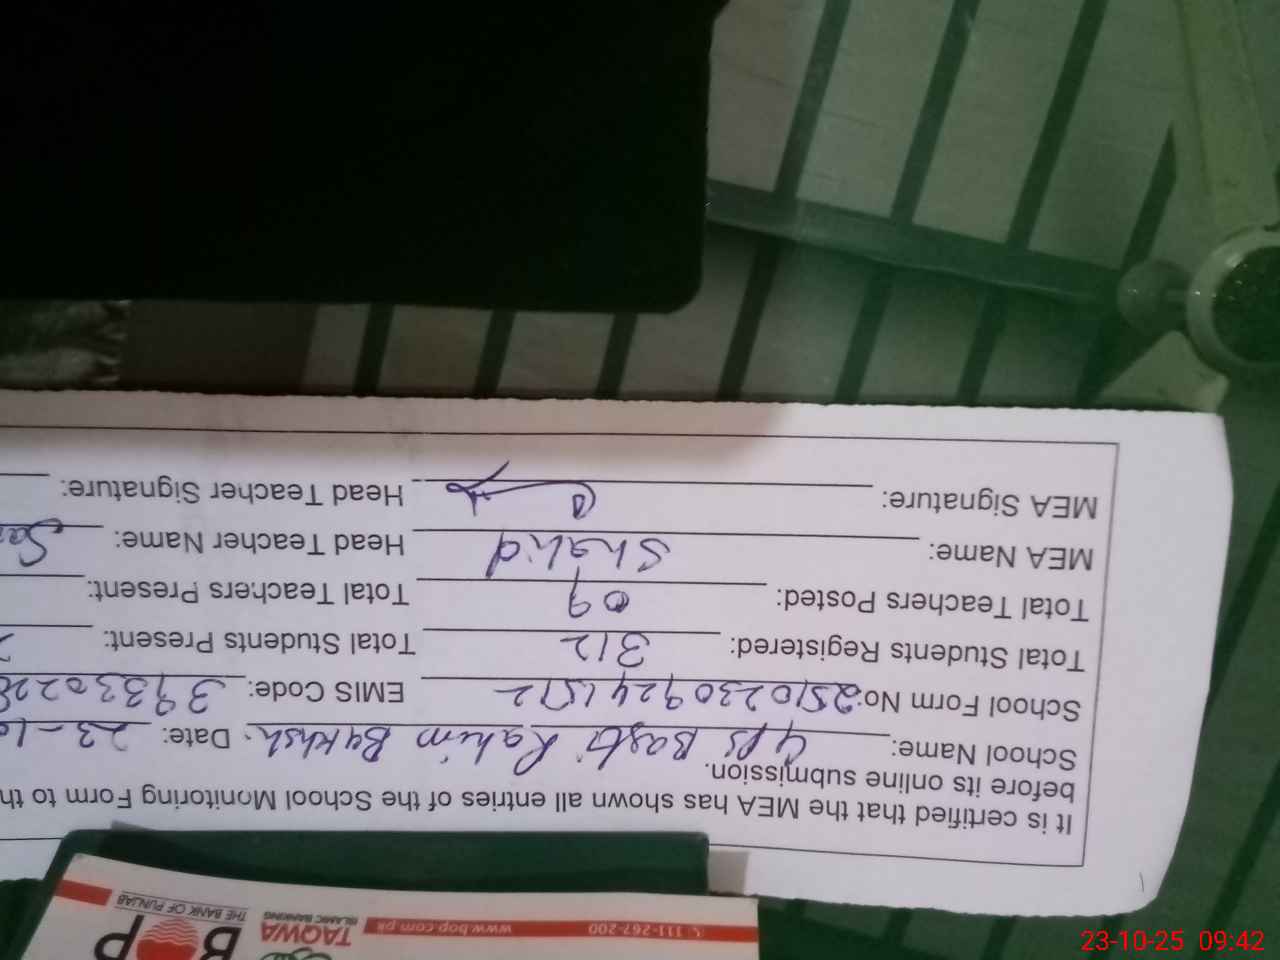 It is certified that the MEA has shown all entries of the School Monitoring Form to th
before its online submission.
School Name: GPS Basti Rahim Bakhsh. Date: 23-10
School Form No: 25102309241512 EMIS Code: 39330228
Total Students Registered: 312 Total Students Present:
Total Teachers Posted: 09 Total Teachers Present:
MEA Name: Shahid Head Teacher Name:
MEA Signature: Head Teacher Signature:
111-267-200 www.bop.com.pk
TAQWA
ISLAMIC BANKING
BOP
THE BANK OF PUNJAB
23-10-25 09:42